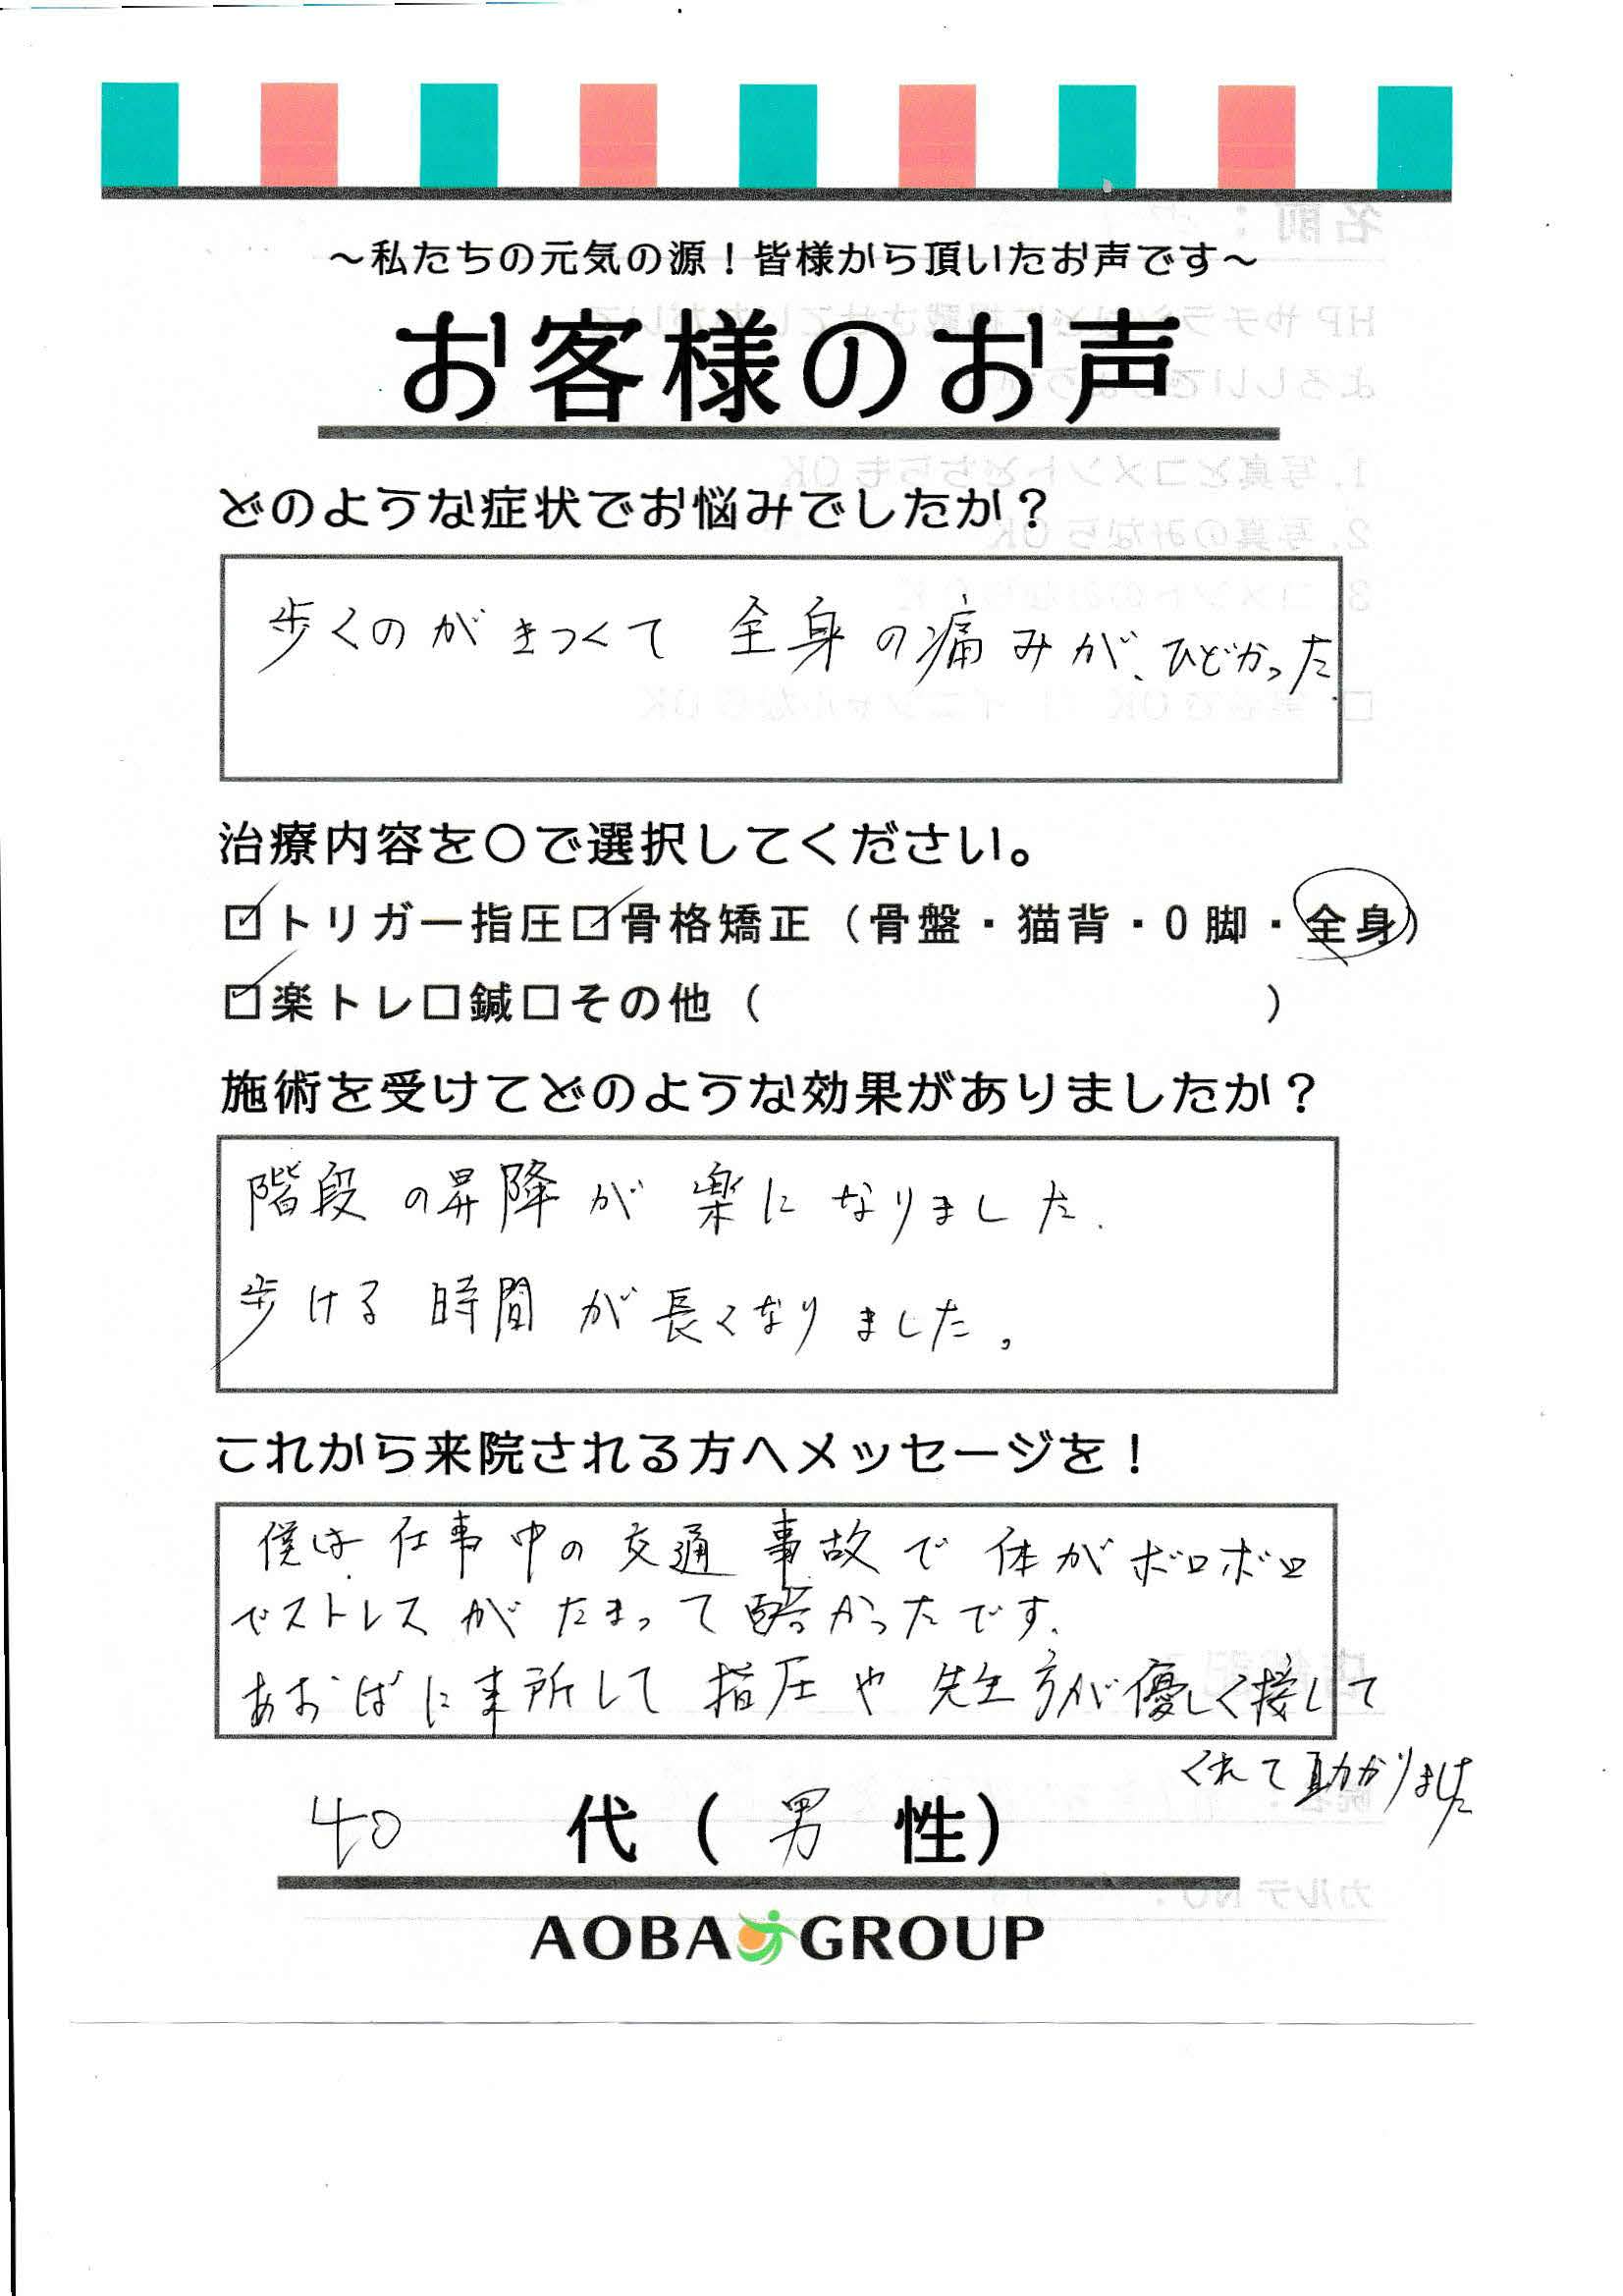 ～私たちの元気の源！皆様から頂いたお声です～
お客様のお声
どのような症状でお悩みでしたか？
歩くのがきつくて 全身の痛みが、ひどかった.
治療内容を〇で選択してください。
☑トリガー指圧☑骨格矯正（骨盤・猫背・O脚・全身）
☑楽トレ□鍼□その他（　　　　　　　　　　）
施術を受けてどのような効果がありましたか？
階段の昇降が楽になりました.
歩ける時間が長くなりました。
これから来院される方へメッセージを！
僕は仕事中の交通事故で体がボロボロ
でストレスがたまって酷かったです.
あおばに来所して指圧や先生方が優しく接して
くれて助かりました
40 代（男 性）
AOBA GROUP